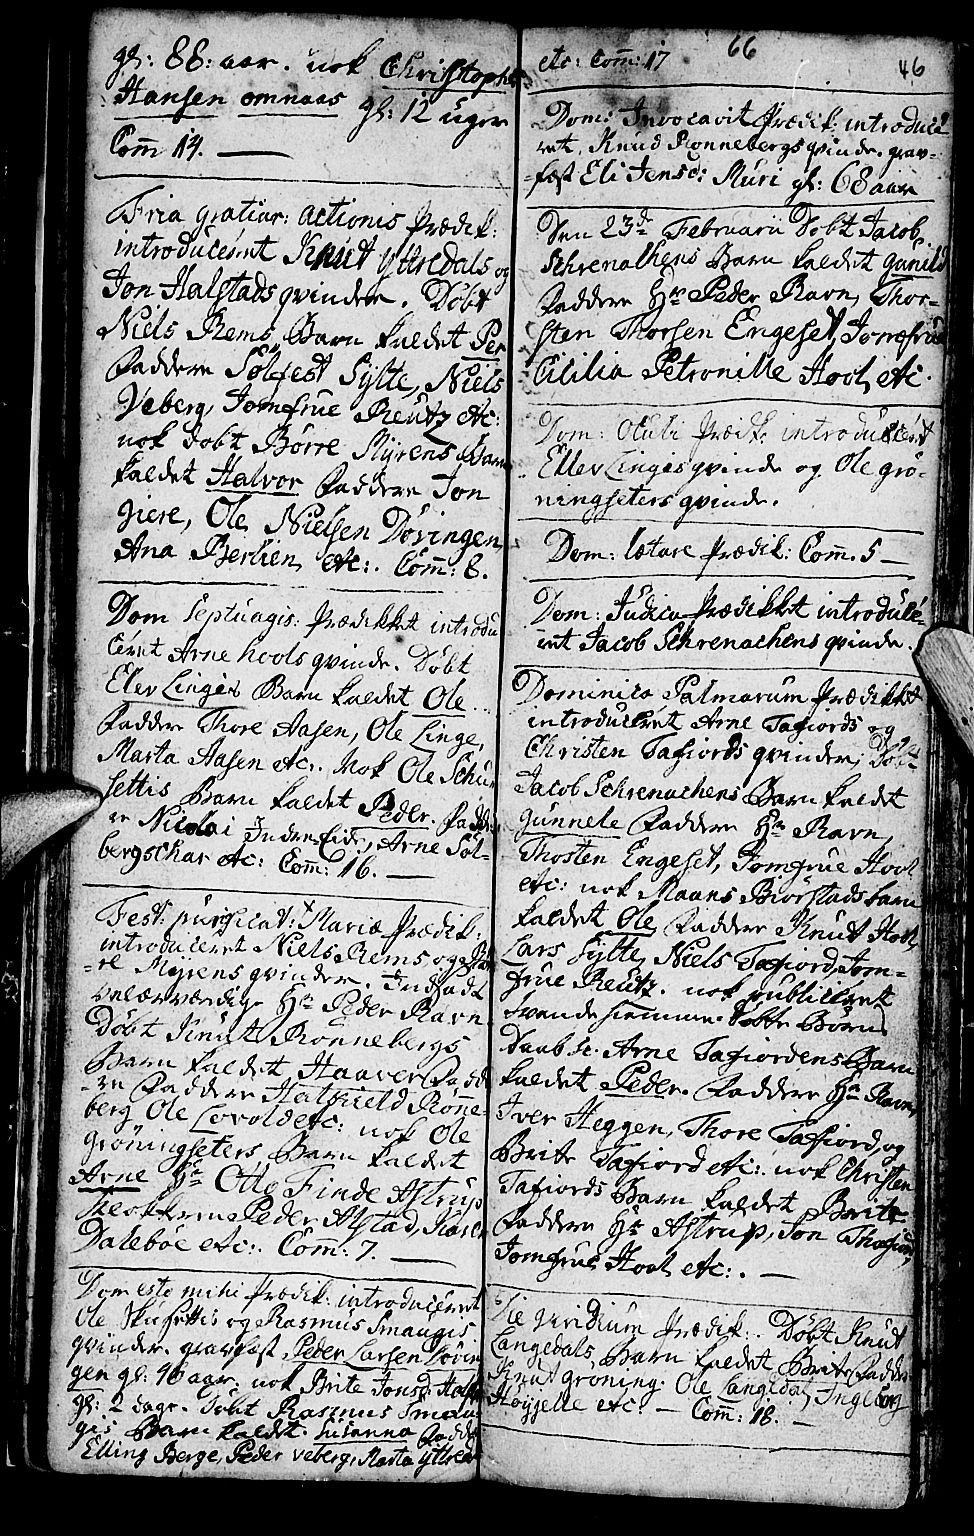 gl: 88: aar. nok Christopher
Hansen omnaas gl: 12 uger
Com̄ 14. —
Fria gratiar: actionis Prædik:
introduceret Knut Yttredals og
Jon Halstads qvinder. Døbt
Niels Rems Barn kaldet Per
Faddere Solfest Sylte, Niels
Veberg, Jomfrue Reutz etc:
nok døbt Børre Myrens Barn
kaldet Halvor Faddere Jon
giere, Ole Nielsen Døvingen,
Ana Berlien, etc:. Com̄: 8.
Dom Septuagis: Prædikket introdu
ceret Arne hools qvinde. Døbt
Elev Linges Barn kaldet Ole
Fadder Thore Aasen, Ole Linge,
Marta Aasen etc:. Nok Ole Schu
settis Barn kaldet Peder. Fadde
re Nicolai Indre Eide, Arne Søl-
bergschar etc: Com̄: 16. —
Fest: purificat: Mariæ Prædik:
introduceret Niels Rems, og
re Myrens qvinder. Indsadt
velærværdige Hr Peder Ravn
Døbt Knut Rønnebergs
Barn kaldet Haaver Fadd
re Faddere Halkield Rønne-
berg Ole Lovold etc: nok Ole
grøningseters Barn kaldet
Arne Hr Otto Finde Astrup
Klokkeren Peder Alstad, Karen
Daleboe etc:. Com̄: 7. —
Dom esto mihi Prædik: introduceret
Ole Skusettis og Rasmus Smaugis
qvinder. gravfæst Peder Larsen Døvin
gen gl: 46 aar. nok Brite Jonsd:
gl: 2 dage. Døbt Rasmus Smau
gis Barn kaldet Susanna Fadde
Elling Berge, Peder veberg, Marta Yttredal
etc: Com̄: 17
66
46
Dom: Invocavit Prædik: introduce
ret. Knud Rønnebergs qvinde. grav-
-fæst Eli Jensd: Muri gl: 68 aar
Den 23de Februarii Døbt Jacob
Schrenachens Barn kaldet Gunild
Faddere Hr Peder Ravn, Thor-
sten Thorsen Engeset, Jomfrue
Cicilia Petronille Hool, etc.
Dom: Oculi Prædik: introduceret
Ellev Linges qvinde og Ole grø-
ningseters qvinde.
Dom: lætare Prædik: Com̄. 5 —
Dom: Judica Prædikket introduce-
ret Jacob Schrenachens qvinde.
Dominica Palmarum Prædikket
introduceret Arne Tafiords og
Christen Tafiords qvinder, Døbt
Jacob Schrenachens Barn kaldet
Gunnele Faddere Hr Ravn,
Thosten Engeset, Jomfrue Hool
etc: nok Maans Biørstads barn
kaldet Ole Faddere Knut Hool,
Lars Sylte, Niels Tafiord, Jom-
frue Reutz. nok publiceret
tvende hiemme Døbte Børns
Daab sc. Arne Tafiordens Barn
kaldet Peder. Faddere Hr Ravn,
Iver Heggen, Thore Tafiord, og
Brite Tafiord etc: nok Christen
Tafiords Barn kaldet Brite
Faddere Hr Astrup, Jon Tafiord,
Jomfrue Hool etc:. —
Die Viridium Prædik:. Døbt Knut
Langedals Barn kaldet Brite Fadder
Knut groning. Ole Langedal, Ingeborg
Høyjelle etc. — Com̄: 18. —